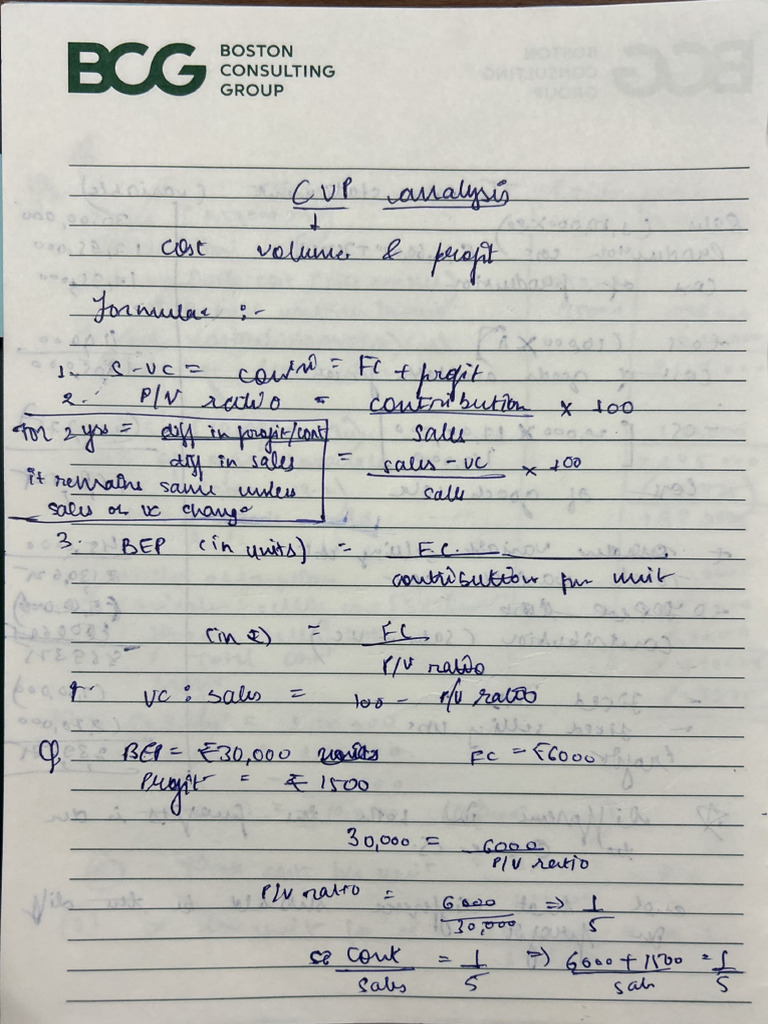 BCG BOSTON
CONSULTING
GROUP
CVP analysis
↓
cost volume & profit
Formulae :-
1. S - VC = contri^n = FC + profit
2. P/V ratio = contribution / sales × 100
= sales - vc / sales × 100
For 2 yrs = diff in profit/cont / diff in sales
it remains same unless
sales or vc change
3. BEP (in units) = F.C. / contribution per unit
(in ₹) = FC / P/V ratio
VC : sales = 100 - P/V ratio
Q. BEP = ₹30,000 units FC = ₹6000
Profit = ₹ 1500
30,000 = 6000 / P/V ratio
P/V ratio = 6000 / 30,000 ⇒ 1/5
Cont / sales = 1/5 ⇒ 6000 + 1500 / sale = 1/5